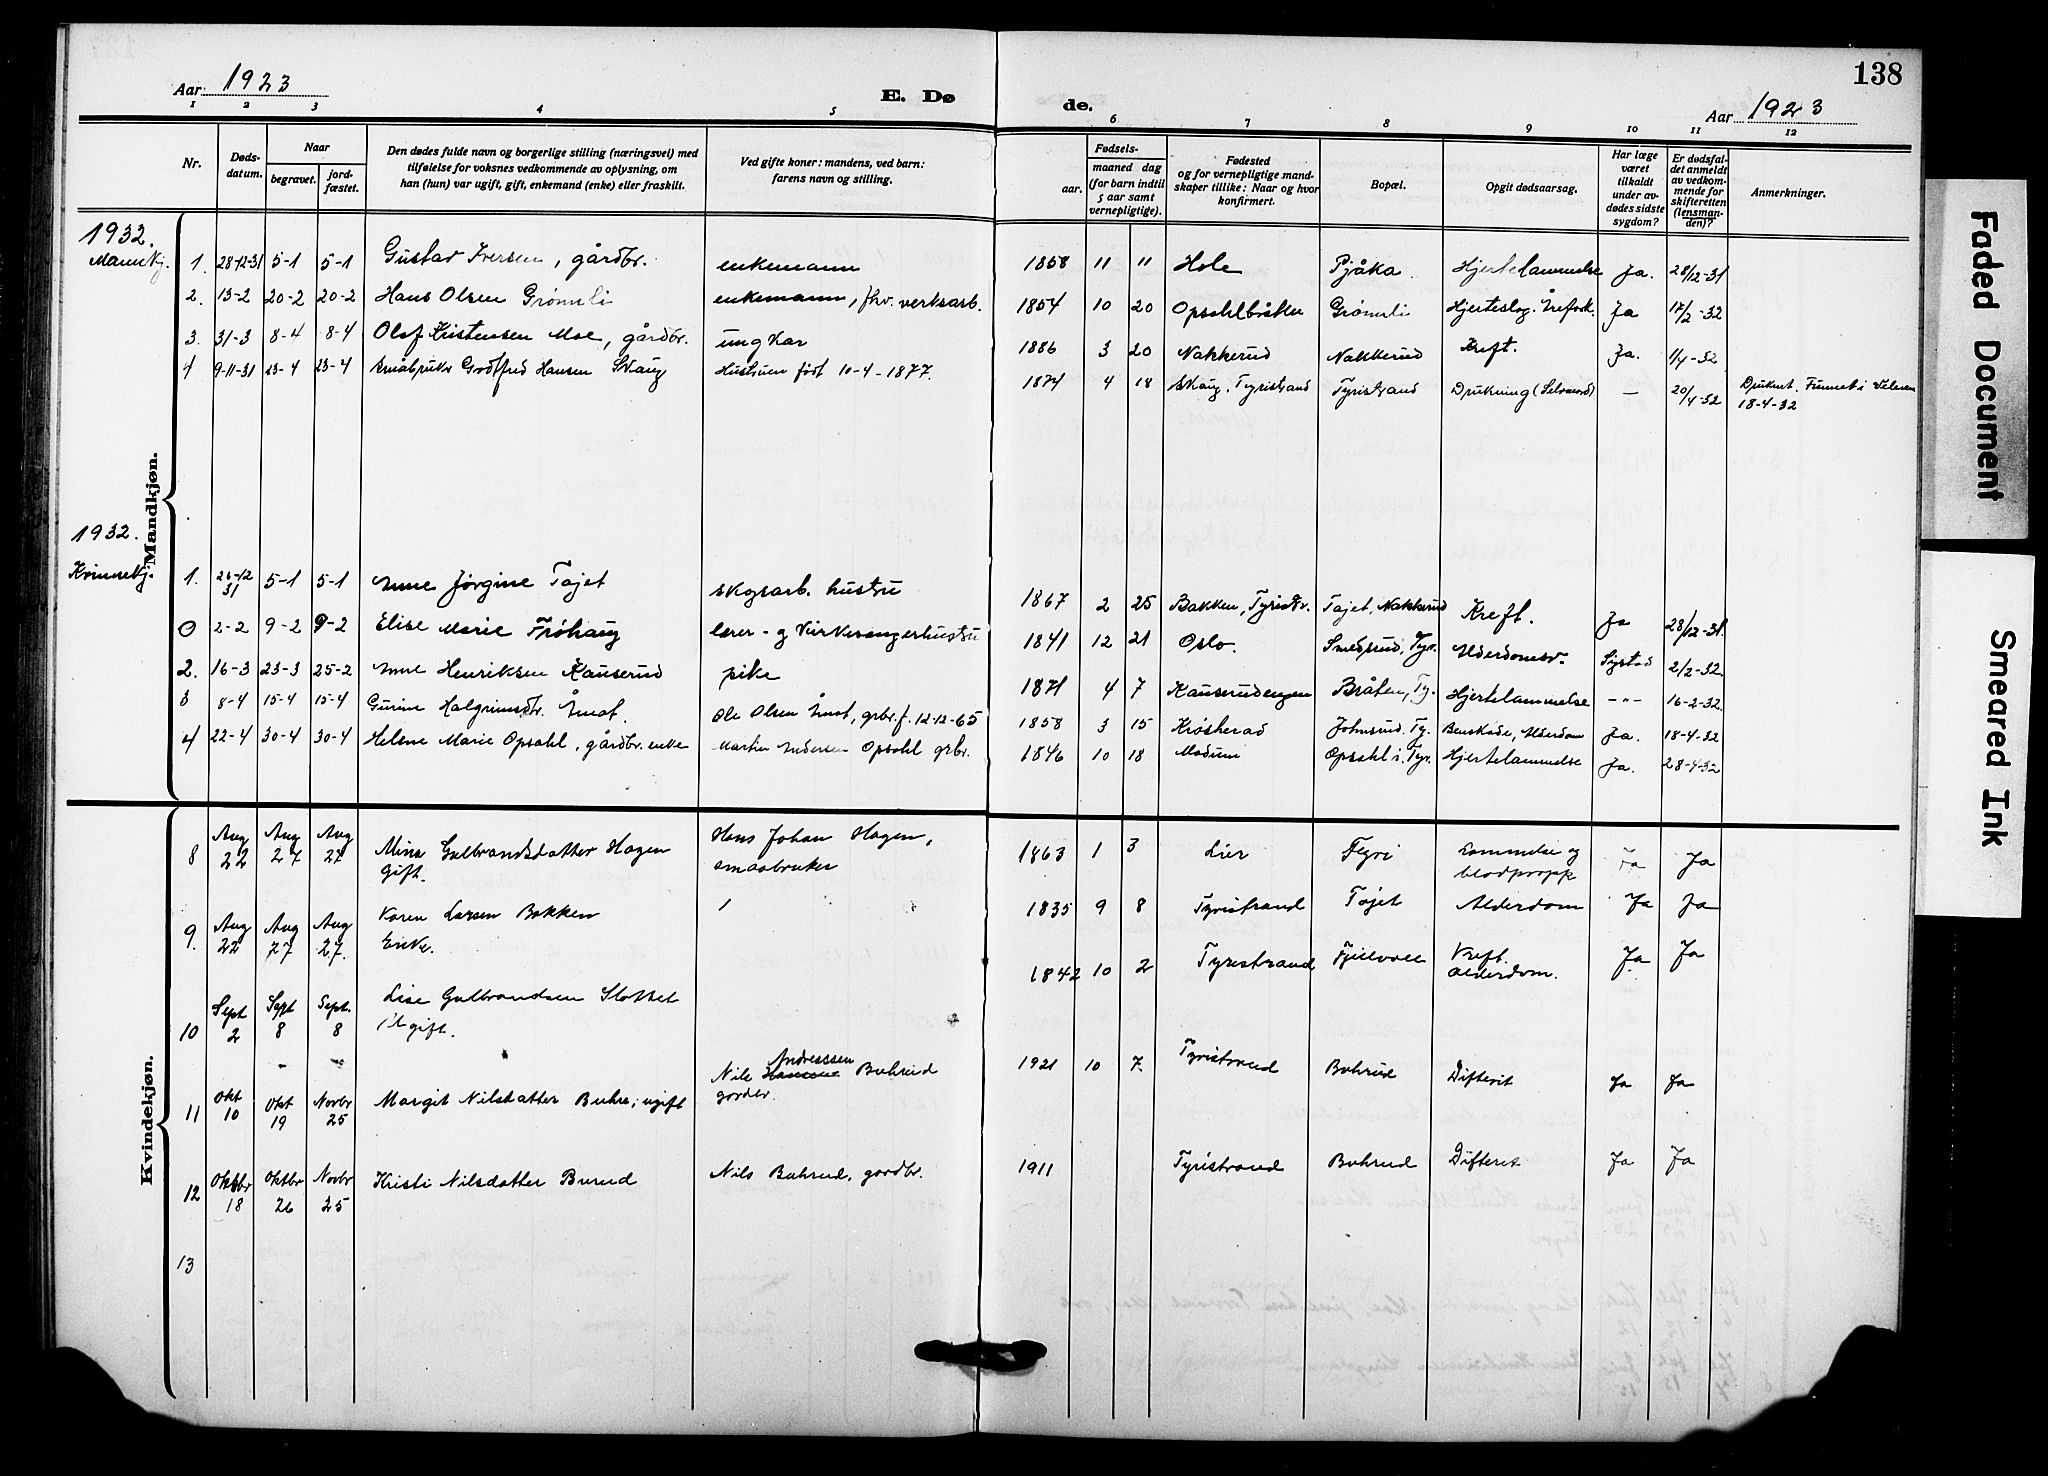 138
Aar 1923
E. Dø
de.
Aar 1923
1 2 3 4 5 6 7 8 9 10 11 12
Nr.
Døds-
datum.
Naar
begravet.
jord-
fæstet.
Den dødes fulde navn og borgerlige stilling (næringsvei) med
tilføielse for voksnes vedkommende av oplysning, om
han (hun) var ugift, gift, enkemand (enke) eller fraskilt.
Ved gifte koner: mandens, ved barn:
farens navn og stilling.
Fødsels-
aar.
maaned dag
(for barn indtil
5 aar samt
vernepligtige).
Fødested
og for vernepligtige mand-
skaper tillike: Naar og hvor
konfirmert.
Bopæl.
Opgit dødsaarsag.
Har læge
været
tilkaldt
under av-
dødes sidste
sygdom?
Er dødsfal-
det anmeldt
av vedkom-
mende for
skifteretten
(lensman-
den)?
Anmerkninger.
1932.
Mannkj.
1. 28-12-31 5-1 5-1 Gustav Iversen, gårdbr. enkemann 1858 11 11 Hole Pjåka Hjertelammelse Ja. 28/12-31
2. 13-2 20-2 20-2 Hans Olsen Grønnli enkemann, fhv. verksarb. 1854 10 20 Opsahlbråten Grønnli Ja 17/2-32
3. 31-3 8-4 8-4 Olaf Kristensen Moe, gårdbr. ungkar 1886 3 20 Nakkerud Nakkerud Kreft. Ja. 1/4-32
4 9-11-31 23-4 23-4 Småbruker Godtfred Hansen Skaug Hustruen født 10-4-1877. 1874 4 18 Skaug, Tyristrand Tyristrand Drukning (Selvmord) — 20/4-32 Druknet. Funnet i
18-4-32
Mandkjøn.
1932.
Kvinnekj.
1. 26-12
31 5-1 5-1 Anne Jørgine Tajet skogsarb. hustru 1867 2 25 Bakken, Tyristr. Tajet, Nakkerud Kreft. Ja 28/12-31.
0 2-2 9-2 9-2 Elise Marie Frøhaug lærer- og kirkesangerhustru 1841 12 21 Oslo. Smedsrud, Tyr. Alderdomsv. 2/2-32.
2. 16-3 23-3 25-2 Anne Henriksen Kauserud pike 1871 4 7 Kauserudengen Bråten, Ty. Hjertelammelse -"- 16-2-32.
3 8-4 15-4 15-4 Gurine Halgrimsdtr. Ole Olsen grbr. f. 12-12-65 1858 3 15 Krøsherad Johnsrud. Ty. Benskade, Alderdom Ja. 18-4-32
4 22-4 30-4 30-4 Helene Marie Opsahl, gårdbr. enke Martin Andersen Opsahl grbr. 1846 10 18 Modum Opsahl i Tyr. Hjertelammelse Ja. 28-4-32
8 Aug
22 Aug
27 Aug
27 Mina Gulbrandsdatter Hagen
gift. Hans Johan Hagen,
smaabruker 1863 1 3 Lier Fegri Lammelse og
blodpropp Ja Ja
9. Aug
22 Aug
27 Aug
27. Karen Larsen Bakken
Enke. 1835 9 8 Tyristrand Tajet Alderdom Ja Ja
10 Sept
2 Sept
8 Sept.
8 Lise Gulbrandsen Slottet
Ugift. 1842 10 2 Tyristrand Kreft.
alderdom. Ja Ja
11 Okt
10 Okt
19 Novbr
25 Margit Nilsdatter Buhre, ugift Nils Hansen Andresssen Buhrud
gardbr. 1921 10 7. Tyristrand Buhrud Difterit Ja Ja
12 Oktbr
18 Oktbr
26 Novbr
25 Kristi Nilsdatter Burud Nils Buhrud, gardbr. 1911 Tyristrand Buhrud Difterit Ja Ja
13
Kvindekjøn.
Faded Document
Smeared Ink